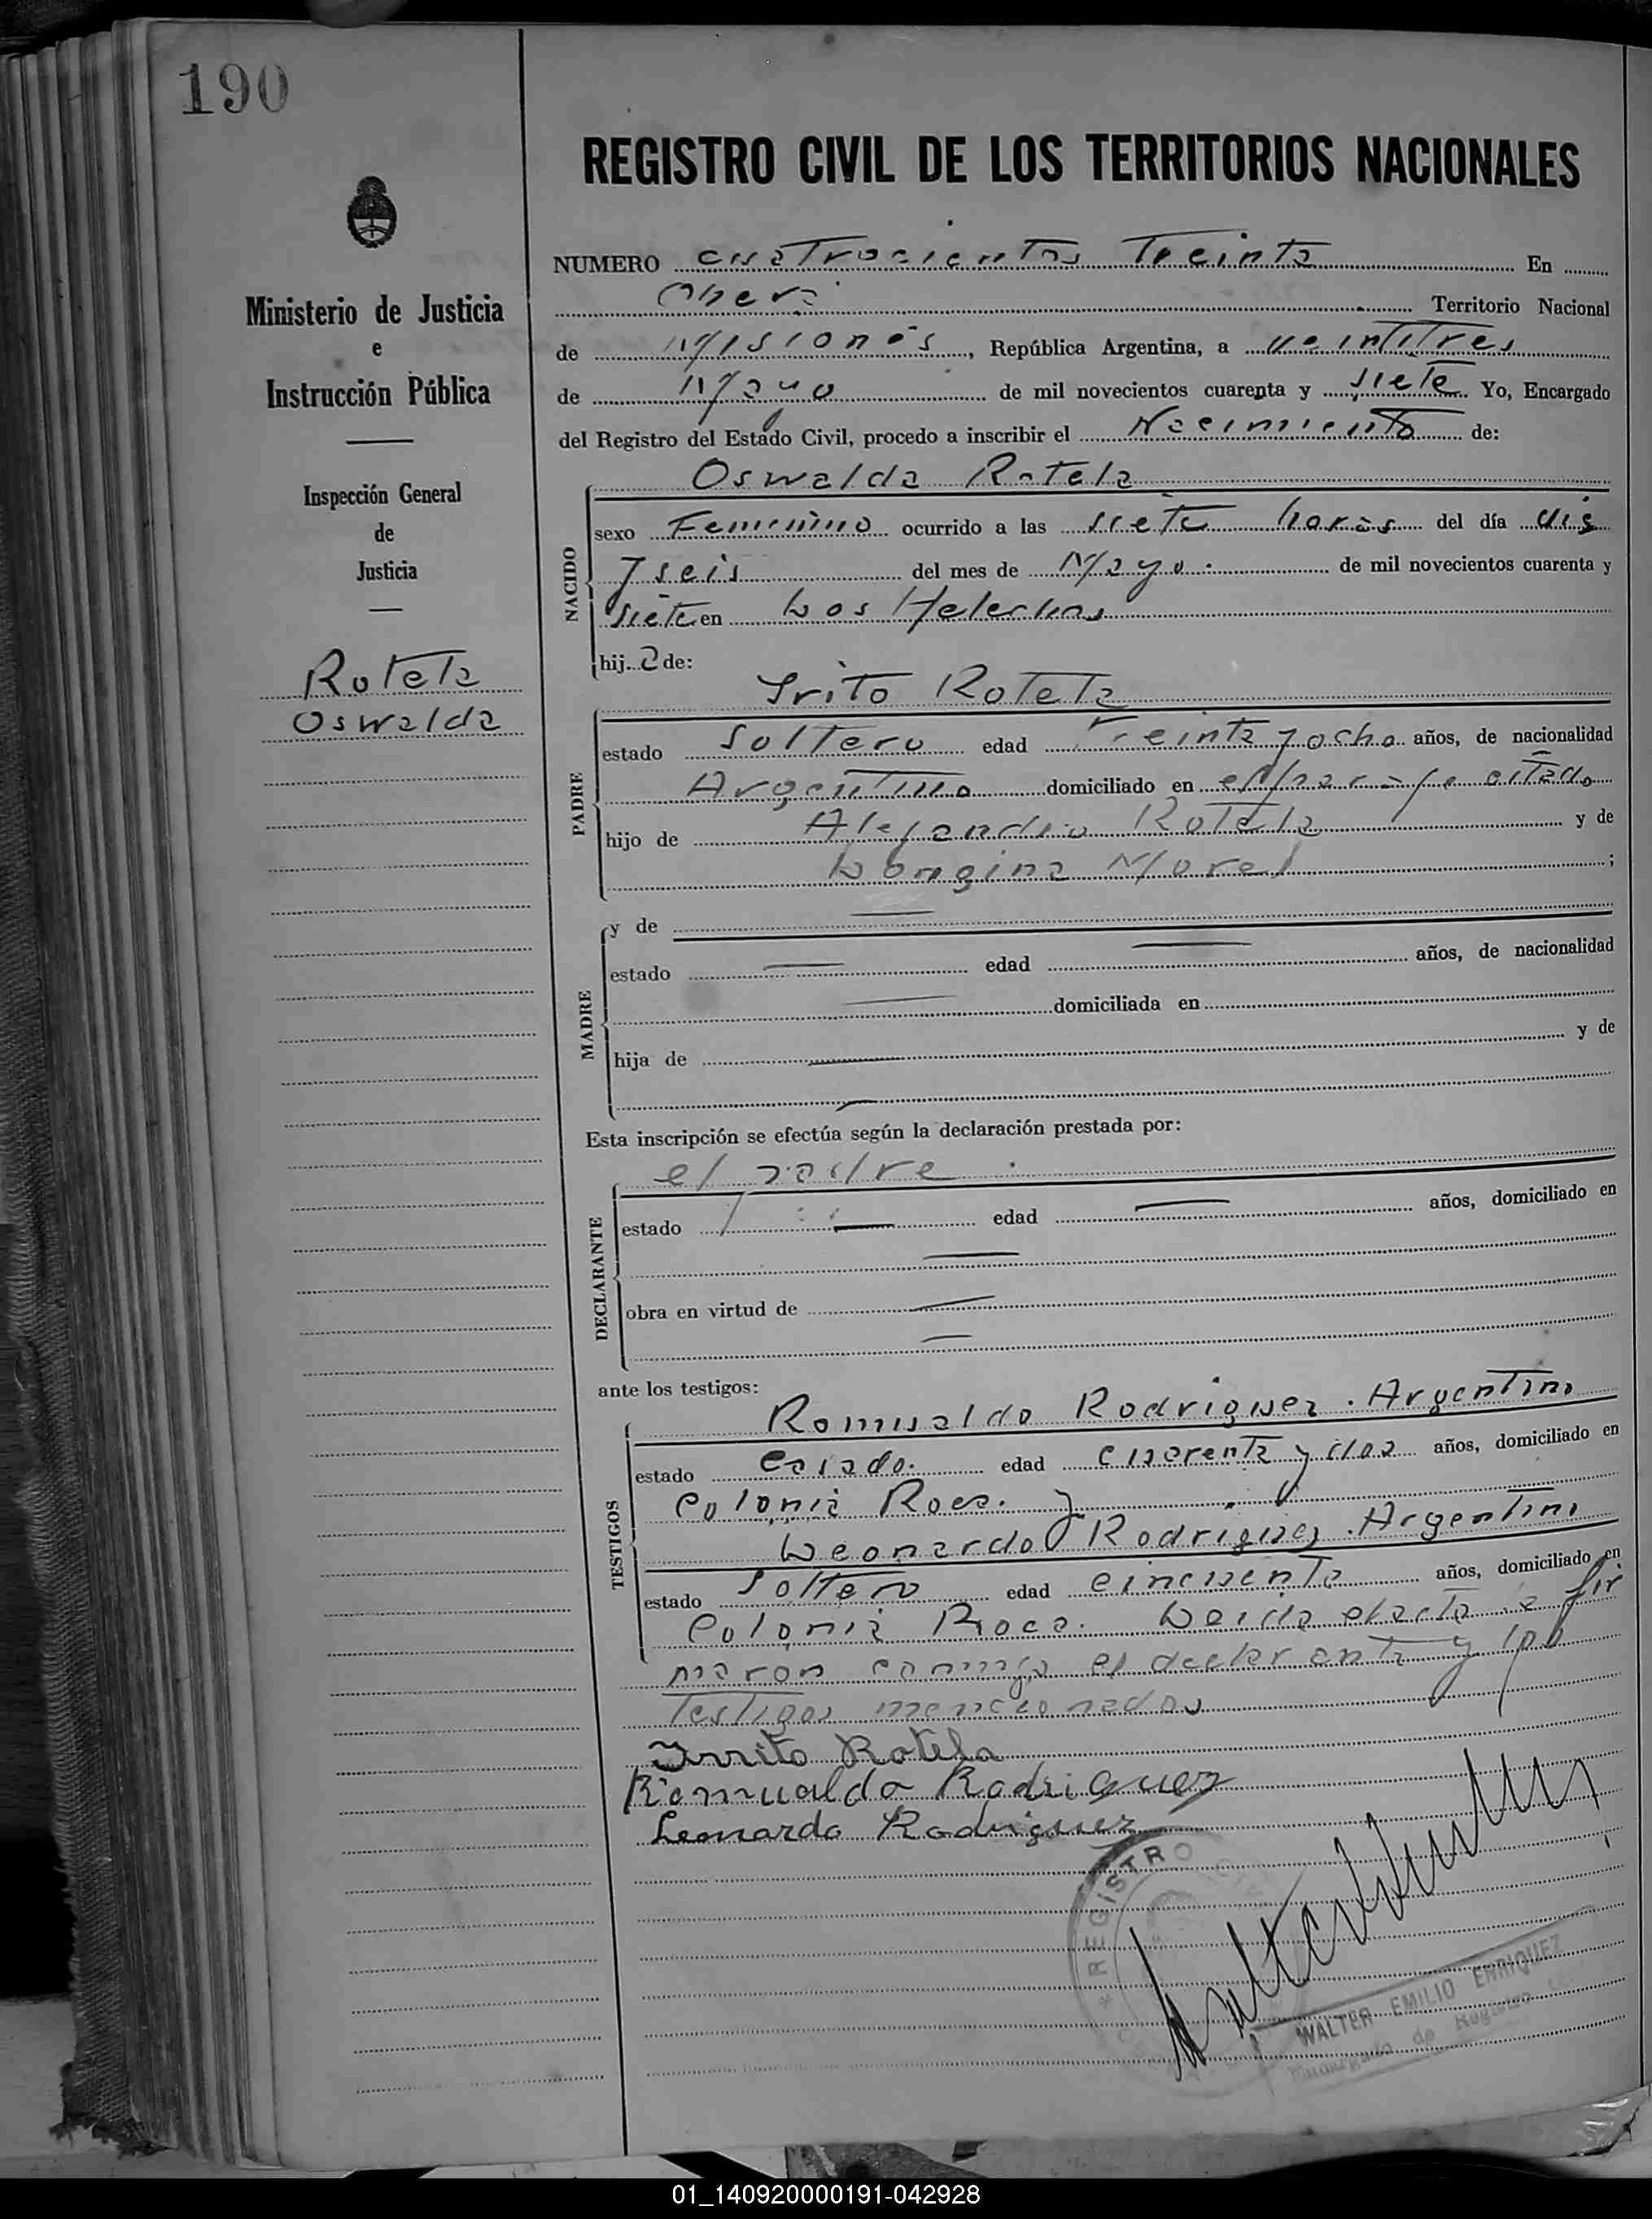 190
REGISTRO CIVIL DE LOS TERRITORIOS NACIONALES
Ministerio de Justicia
e
Instrucción Pública
Inspección General
de
Justicia
Rotela
Oswalda
NUMERO cuatrocientos Treinta En
Oberá Territorio Nacional
de Misiones, República Argentina, a veintitres
de Mayo de mil novecientos cuarenta y siete Yo, Encargado
del Registro del Estado Civil, procedo a inscribir el Nacimiento de:
NACIDO
Oswalda Rotela
sexo Femenino ocurrido a las siete horas del día diez
y seis del mes de Mayo de mil novecientos cuarenta y
siete en Los Helechos
hija de:
PADRE
Irito Rotela
estado Soltero edad Treinta y ocho años, de nacionalidad
Argentino domiciliado en el paraje citado
hijo de Alejandro Rotela y de
Longina Morel ;
MADRE
y de
estado edad años, de nacionalidad
domiciliada en
hija de y de
Esta inscripción se efectúa según la declaración prestada por:
DECLARANTE
el padre
estado edad años, domiciliado en
obra en virtud de
ante los testigos:
TESTIGOS
Romualdo Rodriguez. Argentino
estado Casado. edad cuarenta y dos años, domiciliado en
Colonia Roca. y
Leonardo Rodriguez. Argentino
estado Soltero edad cincuenta años, domiciliado en
Colonia Roca. Leida el acta la fir
maron conmigo el declarante y los
Testigos mencionados
Irrito Rotela
Romualdo Rodriguez
Leonardo Rodriguez
REGISTRO
WALTER EMILIO ENRIQUEZ
Encargado de Registro
01_140920000191-042928